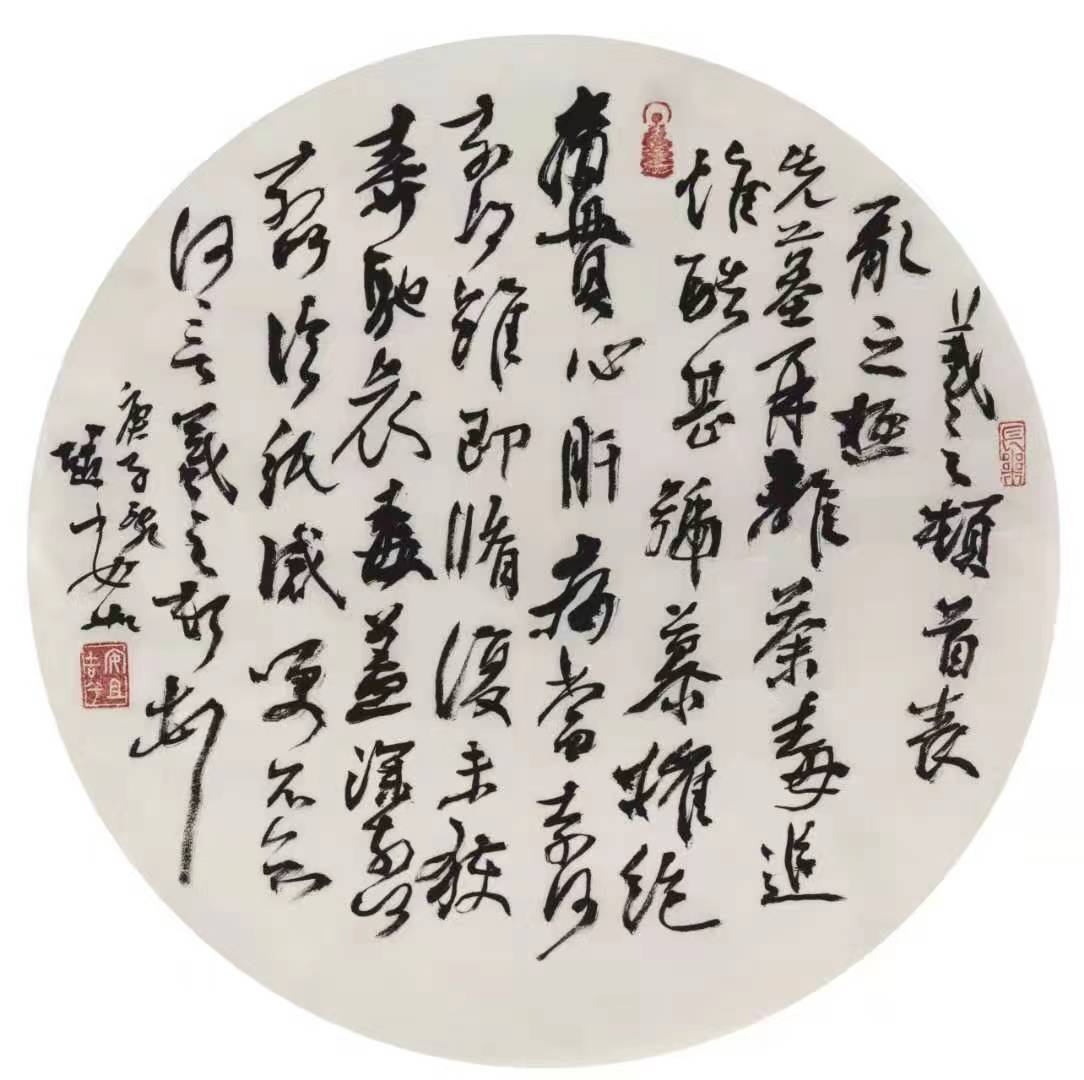 羲之頓首喪
亂之極
先墓再離荼毒追
惟酷甚號慕摧絕
痛貫心肝痛當奈何
奈何雖即脩復未獲
奔馳哀毒益深奈何
奈何臨紙感哽不知
何言羲之頓首
庚子
安且吉兮